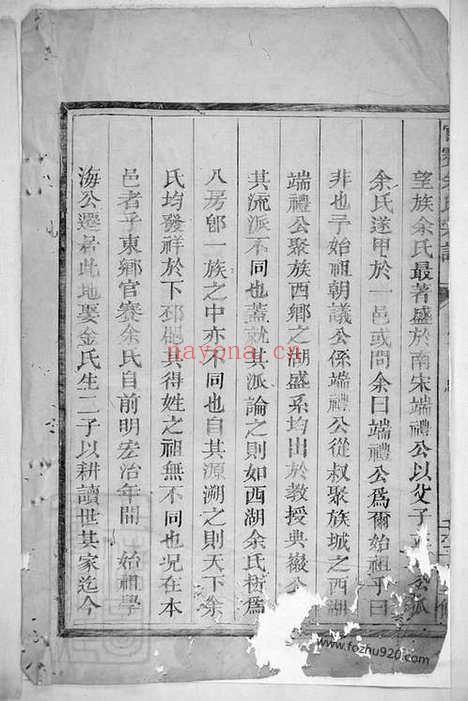 望族余氏最著盛於南宋端禮公以父子
余氏遂甲於一邑或問余曰端禮公爲爾始祖乎曰
非也予始祖朝議公係端禮公從叔聚族城之西湖
端禮公聚族西鄉之湖盛系均出於教授典徽公
其流派不同也蓋就其派論之則如西湖余氏衍爲
八房即一族之中亦不同也自其源溯之則天下余
氏均發祥於下邳其得姓之祖無不同也况在本
邑者乎東鄉官寮余氏自前明宏治年間 始祖學
海公遷居此地娶金氏生二子以耕讀世其家迄今
nayona.cn
www.fozhu920.com